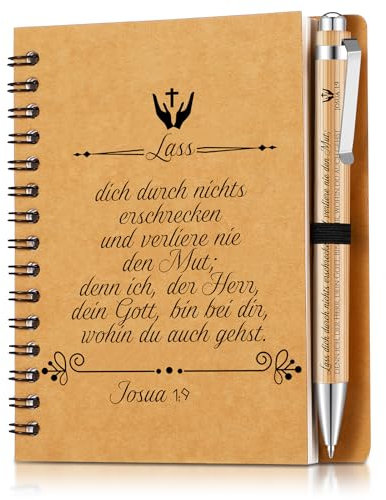 Lass
dich durch nichts
erschrecken
und verliere nie
den Mut;
denn ich, der Herr,
dein Gott, bin bei dir,
wohin du auch gehst.
Josua 1:9
JOSUA 1:9
Lass dich durch nichts erschrecken und verliere nie den Mut;
DENN ICH, DER HERR, DEIN GOTT, BIN BEI DIR, WOHIN DU AUCH GEHST